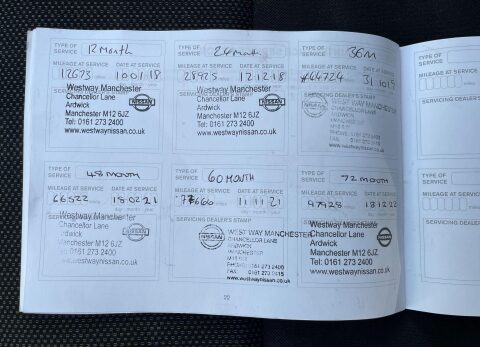 TYPE OF SERVICE 12 Month
MILEAGE AT SERVICE DATE AT SERVICE
12673 miles 10 01 18
Westway Manchester
Chancellor Lane
Ardwick
Manchester M12 6JZ
Tel: 0161 273 2400
www.westwaynissan.co.uk
NISSAN
TYPE OF SERVICE 24 mont.
MILEAGE AT SERVICE DATE AT SERVICE
28925 miles 12 12 18
Westway Manchester
Chancellor Lane
Ardwick
Manchester M12 6JZ
Tel: 0161 273 2400
www.westwaynissan.co.uk
NISSAN
TYPE OF SERVICE 36M
MILEAGE AT SERVICE DATE AT SERVICE
44724
SERVICING DEALER'S STAMP
WESTWAY MANCHESTER
CHANCELLOR LANE
ARDWICK
MANCHESTER
TYPE OF SERVICE 48 MONTH
MILEAGE AT SERVICE DATE AT SERVICE
66522 miles 18 02 21
Westway Manchester
Chancellor Lane
Ardwick
Manchester M12 6JZ
Tel: 0161 273 2400
www.westwaynissan.co.uk
TYPE OF SERVICE 60 MONTH
MILEAGE AT SERVICE DATE AT SERVICE
77666 miles 11 11 21
SERVICING DEALER'S STAMP
NISSAN
WEST WAY MANCHESTER
CHANCELLOR LANE
ARDWICK
MANCHESTER
PHONE: 0161 273 2400
FAX: 0161 273 2415
www.westwaynissan.co.uk
TYPE OF SERVICE 72 MONTH
MILEAGE AT SERVICE DATE AT SERVICE
97928 18 12 22
Westway Manchester
Chancellor Lane
Ardwick
Manchester M12 6JZ
Tel: 0161 273 2400
www.westwaynissan.co.uk
TYPE OF SERVICE
MILEAGE AT
SERVICING DEALER
TYPE OF SERVICE
MILEAGE AT SER
SERVICING DEALER